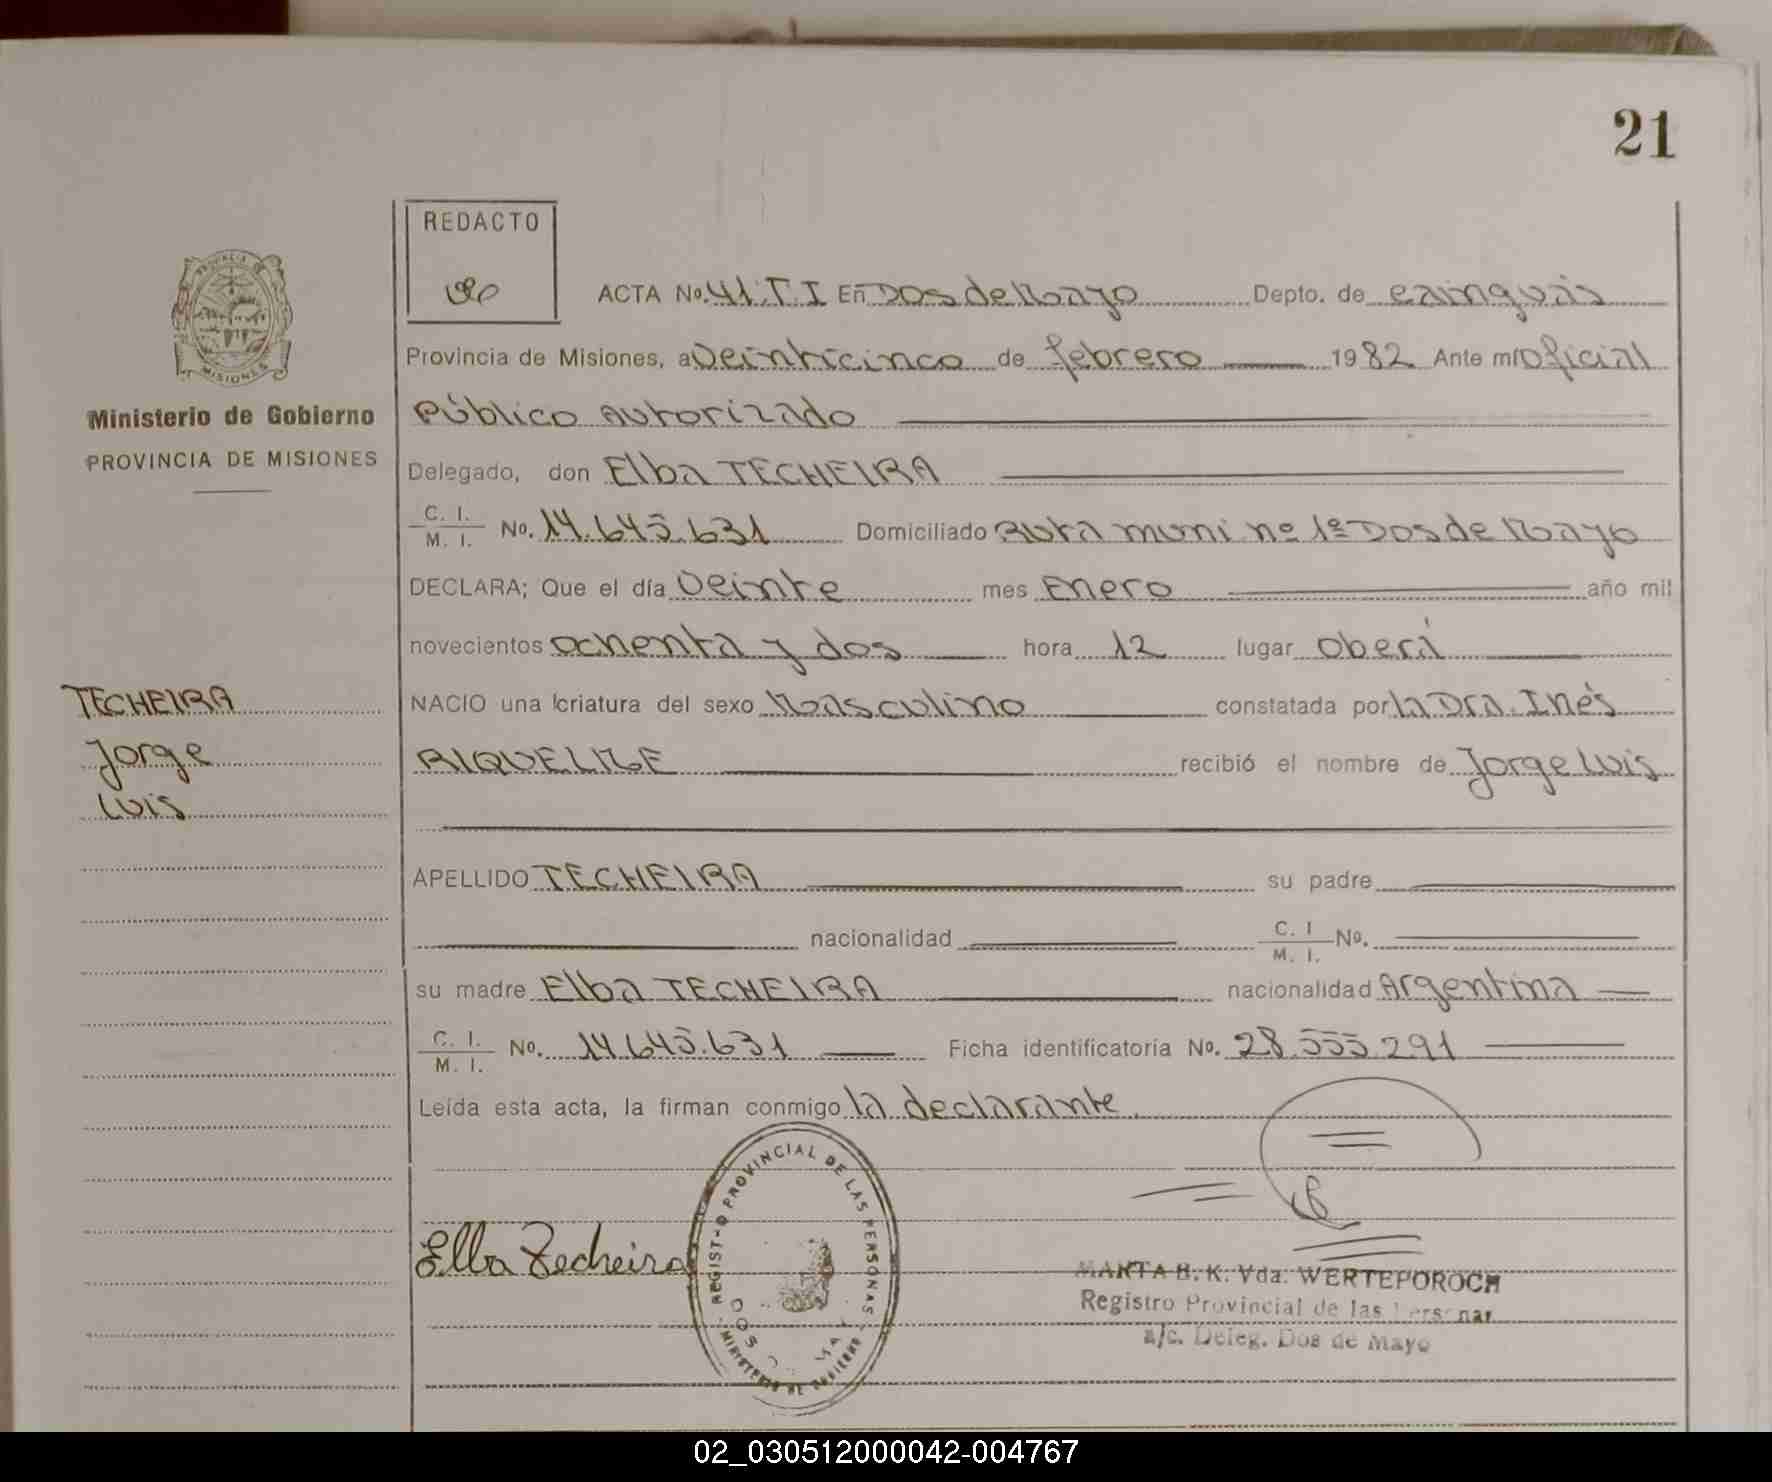 21
REDACTO
ACTA No. 41. T. I En Dos de Mayo Depto. de Cainguás
Provincia de Misiones, a Veinticinco de febrero 1982 Ante mí Oficial
Público Autorizado
Delegado, don Elba TECHEIRA
C. I.
M. I. No. 14.645.631 Domiciliado Ruta muni nº 1º Dos de Mayo
DECLARA; Que el día Veinte mes Enero año mil
novecientos ochenta y dos hora 12 lugar Oberá
NACIO una criatura del sexo Masculino constatada por la Dra. Inés
RIQUELME recibió el nombre de Jorge Luis
APELLIDO TECHEIRA su padre
nacionalidad C. I
M. I. No.
su madre Elba TECHEIRA nacionalidad Argentina
C. I.
M. I. No. 14.645.631 Ficha identificatoria No. 28.555.291
Leída esta acta, la firman conmigo la declarante.
Elba Techeira
REGIST-O PROVINCIAL DE LAS PERSONAS
MINISTERIO DE GOBIERNO
DOS
MARTA B. K. Vda. WERTEPOROCH
Registro Provincial de las Personas
a/c. Deleg. Dos de Mayo
PROVINCIA DE
MISIONES
Ministerio de Gobierno
PROVINCIA DE MISIONES
TECHEIRA
Jorge
Luis
02_030512000042-004767